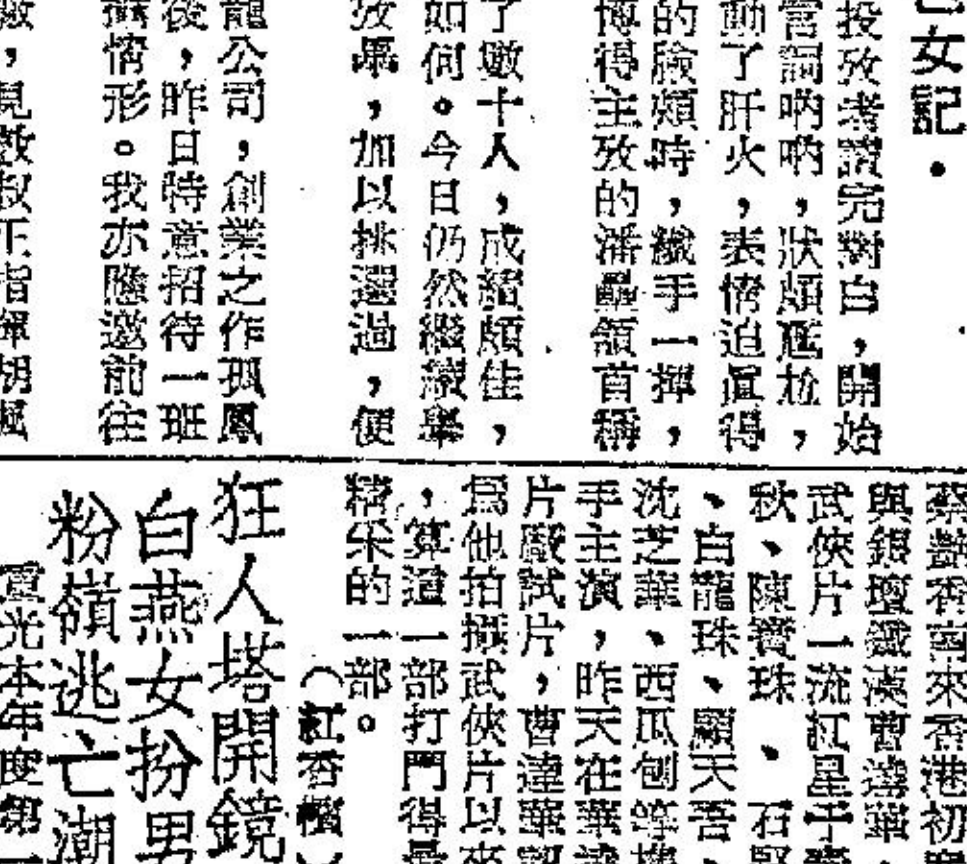 色女記・
投攷者讀完對白，開始
官詞吶吶，狀頗尷尬，
動了肝火，表情迫眞得
的臉頰時，纖手一揮，
博得主攷的潘壘領首稱
了數十人，成績頗佳，
如何。今日仍然繼續舉
攷畢，加以挑選過，便
龍公司，創業之作孤鳳
後，昨日特意招待一班
攝情形。我亦應邀前往
，見敎叔正指揮胡楓
蔡艷香南來香港初
與銀壇鐵漢曹達華
武俠片一流紅星于素
秋、陳寶珠、石堅
、白龍珠、顧天吾、
沈芝華、西瓜刨等
手主演，昨天在華達
片廠試片，曹達華認
爲他拍攝武俠片以來
，算這一部打鬥得最
精采的一部。
（紅香檳）
狂人塔開鏡
白燕女扮男
粉嶺逃亡潮
重光本年度第一